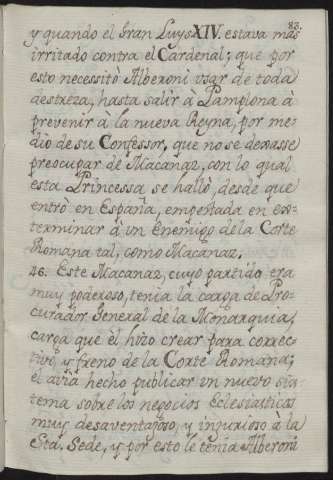 83.
y quando el Gran Luys XIV. estava mas
irritado contra el Cardenal; que por
esto necessitò Alberoni usar de toda
destreza, hasta salir à Pamplona à
prevenir à la nueva Reyna, por me-
dio de su Confessor, que no se dexasse
preocupar de Macanaz, con lo qual
esta Princessa se hallò, desde que
entrò en España, empeñada en ex-
terminar à un Enemigo de la Corte
Romana tal, como Macanaz.
46. Este Macanaz, cuyo partido era
muy poderoso, tenia la carga de Pro-
curador General de la Monarquia,
carga que el hizo crear para correc-
tivo, y freno de la Corte Romana;
el avia hecho publicar un nuevo sis-
tema sobre los negocios Eclesiasticos
muy desaventajoso, y injurioso à la
Sta. Sede, y por esto le tenia Alberoni